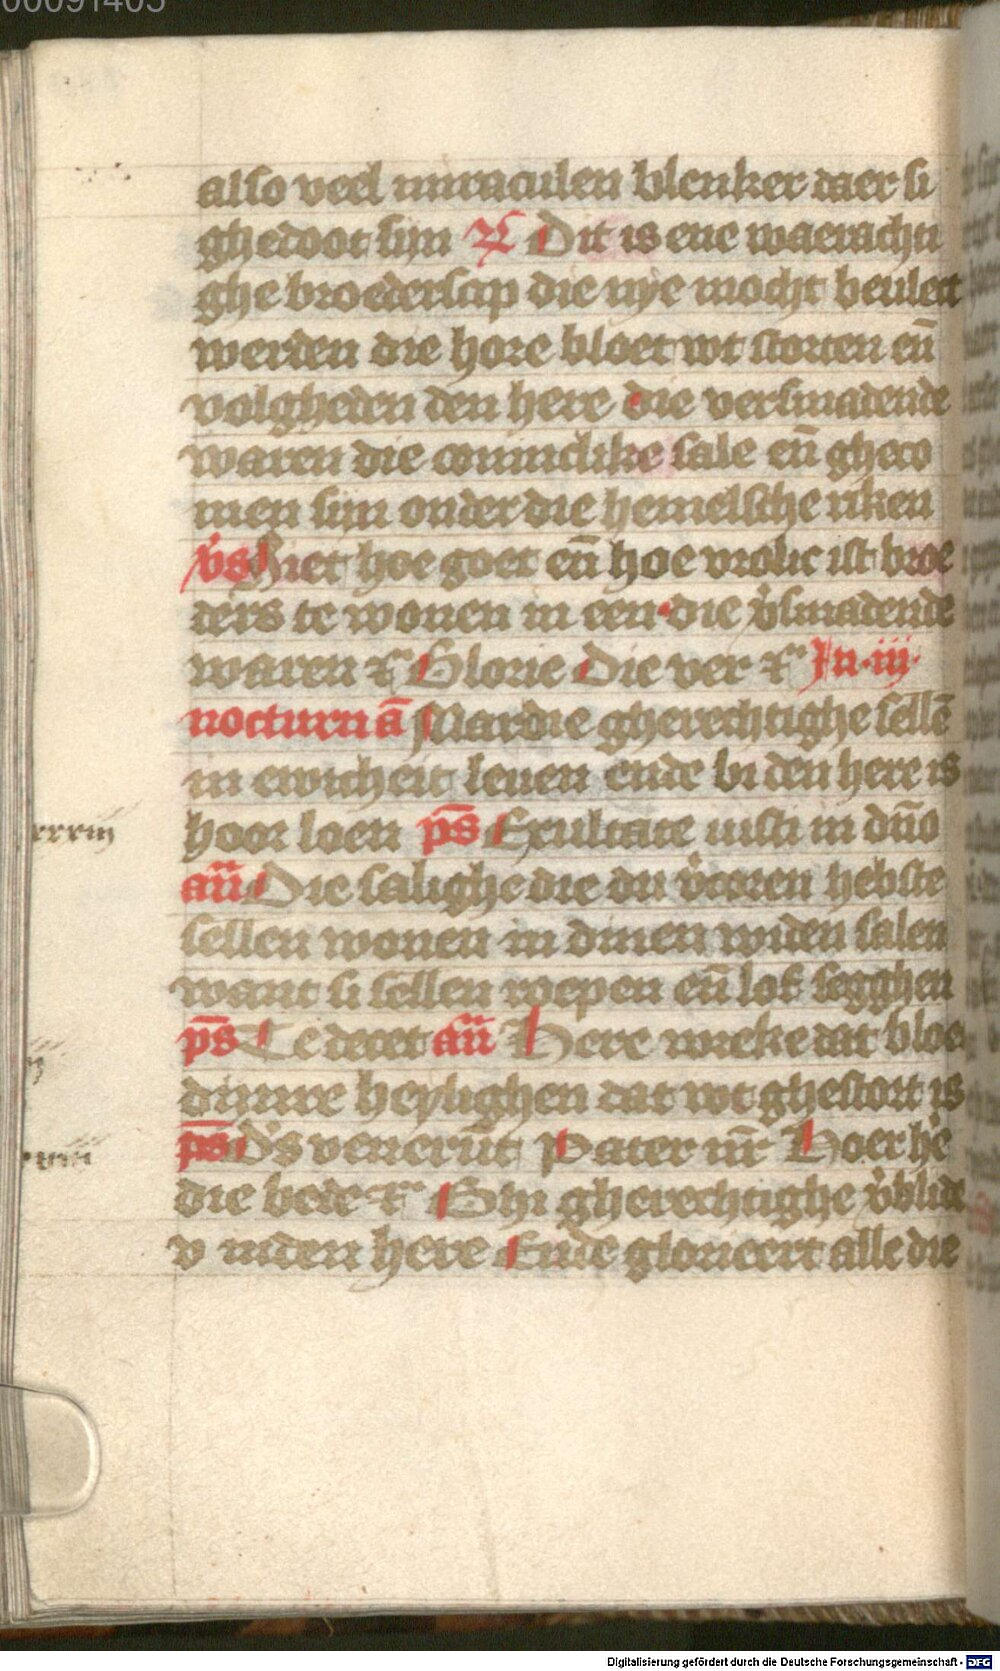 00091405
also veel miraculen blenker daer si
ghedoot sijn R Dit is ene waerachti
ghe broederscap die nye mocht beulect
werden die hore bloet wt storten eñ
volgheden den here die versmadende
waren die coninclike sale eñ gheco
men sijn onder die hemelsche riken
v̾s Siet hoe goet eñ hoe vrolic ist broe
ders te wonen in een die v̾smadende
waren ⁊c Glorie Die ver ⁊c In .iij.
nocturn añ Mar die gherechtighe sellē
in ewicheit leuen ende bi den here is
xxxiij
hoor loen p̄s Exultate iusti in dn̄o
añ Die salighe die du v̾coren hebste
sellen wonen in dinen widen salen
want si sellen roepen eñ lof segghen
p̄s Te decet añ Here wreke dat bloet
dijnre heylighen dat wt ghestort is
p̄s D̾s venerūt Pater nr̄ Hoer he̾
die bede ⁊c Ghi gherechtighe v̾blide
v inden here Ende glorieert alle die
Digitalisierung gefördert durch die Deutsche Forschungsgemeinschaft - DFG